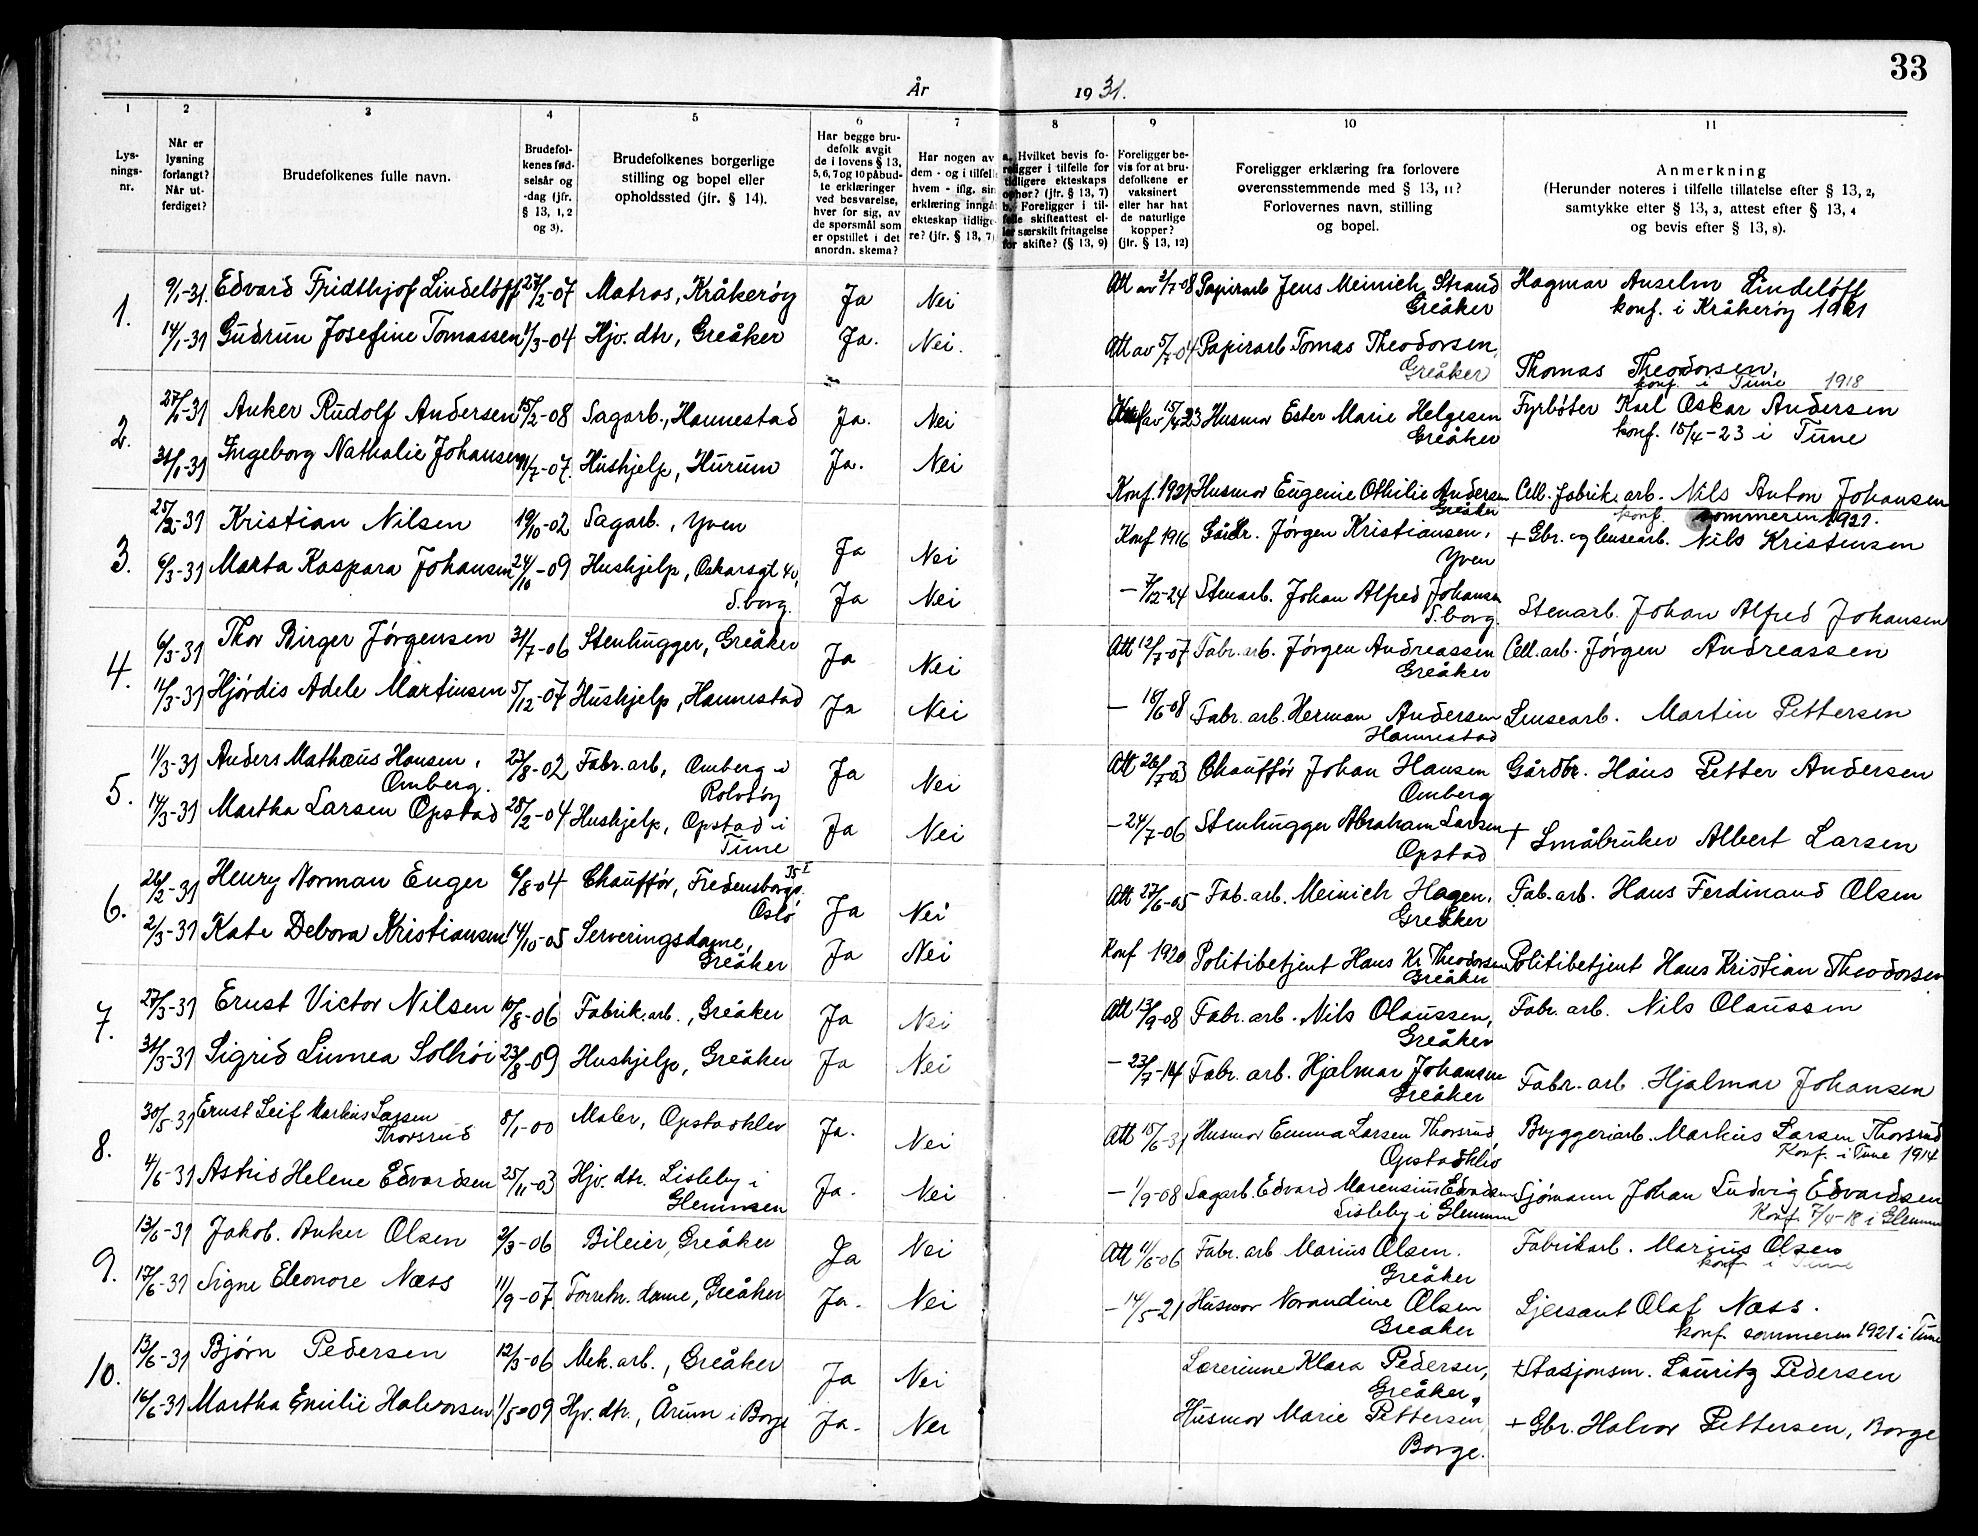 33
År 1931.
1 2 3 4 5 6 7 8 9 10 11
Lysningsnr.
Når er lysning forlangt? Når utferdiget?
Brudefolkenes fulle navn.
Brudefolkenes fødselsår og -dag (jfr. § 13, 1, 2 og 3).
Brudefolkenes borgerlige stilling og bopel eller opholdssted (jfr. § 14).
Har begge brudefolk avgit de i lovens § 13, 5, 6, 7 og 10 påbudte erklæringer ved besvarelse, hver for sig, av de spørsmål som er opstillet i det anordn. skema?
Har nogen av dem - og i tilfelle hvem - iflg. sin erklæring inngått ekteskap tidligere? (jfr. § 13, 7)
a. Hvilket bevis foreligger i tilfelle for tidligere ekteskaps ophør? (jfr. § 13, 7) b. Foreligger i tilfelle skifteattest eller særskilt fritagelse for skifte? (§ 13, 9)
Foreligger bevis for at brudefolkene er vaksinert eller har hat de naturlige kopper? (jfr. § 13, 12)
Foreligger erklæring fra forlovere overensstemmende med § 13, 11? Forlovernes navn, stilling og bopel.
Anmerkning (Herunder noteres i tilfelle tillatelse efter § 13, 2, samtykke efter § 13, 3, attest efter § 13, 4 og bevis efter § 13, 8).
1. 9/1-31. Edvard Fridthjof Lindeløff 27/2-07 Matros, Kråkerøy Ja Nei Att av 3/7-08 Papirarb Jens Meinich Strand Greåker Hagmar Anselm Lindeløff konf. i Kråkerøy 1921
14/1-31 Gudrun Josefine Tomassen 1/3-04 Hjv. dtr, Greåker Ja. Nei. Att av 5/7-04 Papirarb Tomas Theodorsen, Greåker Thomas Theodorsen, konf. i Tune 1918
2. 27/1-31 Anker Rudolf Andersen 15/2-08 Sagarb., Hannestad Ja. Nei Konf av 15/4 23 Husmor Ester Marie Helgesen Greåker Fyrbøter Karl Oskar Andersen konf. 15/4-23 i Tune
31/1-31 Ingeborg Nathalie Johansen 11/7-07. Hushjelp, Hurum Ja. Nei Konf. 1921 Husmor Eugenie Othilie Andersen Greåker Cell. fabrik. arb. Nils Anton Johansen konf. sommeren 1921.
3. 25/2-31 Kristian Nilsen 19/10-02 Sagarb., Yven Ja Nei Konf 1916 Gårdbr. Jørgen Kristiansen, Yven + Gbr. og lensearb. Nils Kristensen
6/3-31 Marta Kaspara Johansen 24/10-09 Hushjelp, Oskarsgt 40, S.borg. Ja Nei - 7/12-24 Stenarb. Johan Alfred Johansen S.borg. Stenarb. Johan Alfred Johansen
4. 6/3-31 Thor Birger Jørgensen 31/7-06 Stenhugger, Greåker Ja Nei Att 12/7-07 Fabr. arb. Jørgen Andreassen Greåker Cell. arb. Jørgen Andreassen
11/3-31 Hjørdis Adele Martinsen 5/12-07 Hushjelp, Hannestad Ja Nei - 18/6-08 Fabr. arb. Herman Andersen Hannestad Lensearb. Martin Pettersen
5. 11/3-31 Anders Mathæus Hansen, Omberg. 23/8-02 Fabr. arb, Omberg i Rolvsøy Ja Nei Att 26/7-03 Chauffør Johan Hansen Omberg Gårdbr. Hans Petter Andersen
14/3-31 Martha Larsen Opstad 28/2-04 Hushjelp, Opstad i Tune Ja Nei - 24/7-06 Stenhugger Abraham Larsen Opstad + Småbruker Albert Larsen
6. 26/2-31 Henry Norman Enger 6/8-04 Chauffør, Fredensborgv. 35 I Oslo Ja Nei Att 27/6-05 Fab. arb. Meinich Hagen, Greåker Fab. arb. Hans Ferdinand Olsen
2/3-31 Kate Debora Kristiansen 14/10-05 Serveringsdame, Greåker Ja Nei Konf 1920 Politibetjent Hans Kr Theodorsen Greåker Politibetjent Hans Kristian Theodorsen
7. 27/3-31 Ernst Victor Nilsen 10/8-06 Fabrik. arb., Greåker Ja Nei Att 13/9-08 Fabr. arb. Nils Olaussen, Greåker Fabr. arb. Nils Olaussen
31/3-31 Sigrid Linnea Solhøi 23/8-09 Hushjelp, Greåker Ja Nei - 23/7-14 Fabr. arb. Hjalmar Johansen Greåker Fabr. arb. Hjalmar Johansen
8. 30/5-31 Ernst Leif Markus Larsen Thorsrud 8/1-00 Maler, Opstadklev Ja. Nei Att 15/6-31 Husmor Emma Larsen Thorsrud, Opstadkliv Bryggeriarb. Markus Larsen Thorsrud Konf. i Tune 1914
4/6-31 Astrid Helene Edvardsen 25/11-03 Hjv. dtr. Lisleby i Glemmen Ja. Nei - 1/9-08 Sagarb. Edvard Marensius Edvardsen Lisleby i Glemmen Sjømann Johan Ludvig Edvardsen Konf. 7/4-18 i Glemmen
9. 13/6-31 Jakob. Anker Olsen 2/3-06 Bileier, Greåker Ja Nei Att 11/6-06 Fabr. arb Marius Olsen. Greåker Fabrikarb. Marius Olsen konf i Tune
17/6-31 Signe Eleonore Næss 11/9-07 Forretn. dame, Greåker Ja. Nei - 14/5-21 Husmor Norandine Olsen Greåker Sjersant Olaf Næss. konf. sommeren 1921 i Tune
10. 13/6-31 Bjørn Pedersen 12/3-06 Mek. arb., Greåker Ja Nei Lærerinne Klara Pedersen, Greåker, + Stasjonsm. Lauritz Pedersen
16/6-31 Martha Emilie Halvorsen 1/5-09 Hjv. dtr., Årum i Borge Ja. Nei Husmor Marie Pettersen, Borge. + Gbr. Halvor Pettersen, Borge